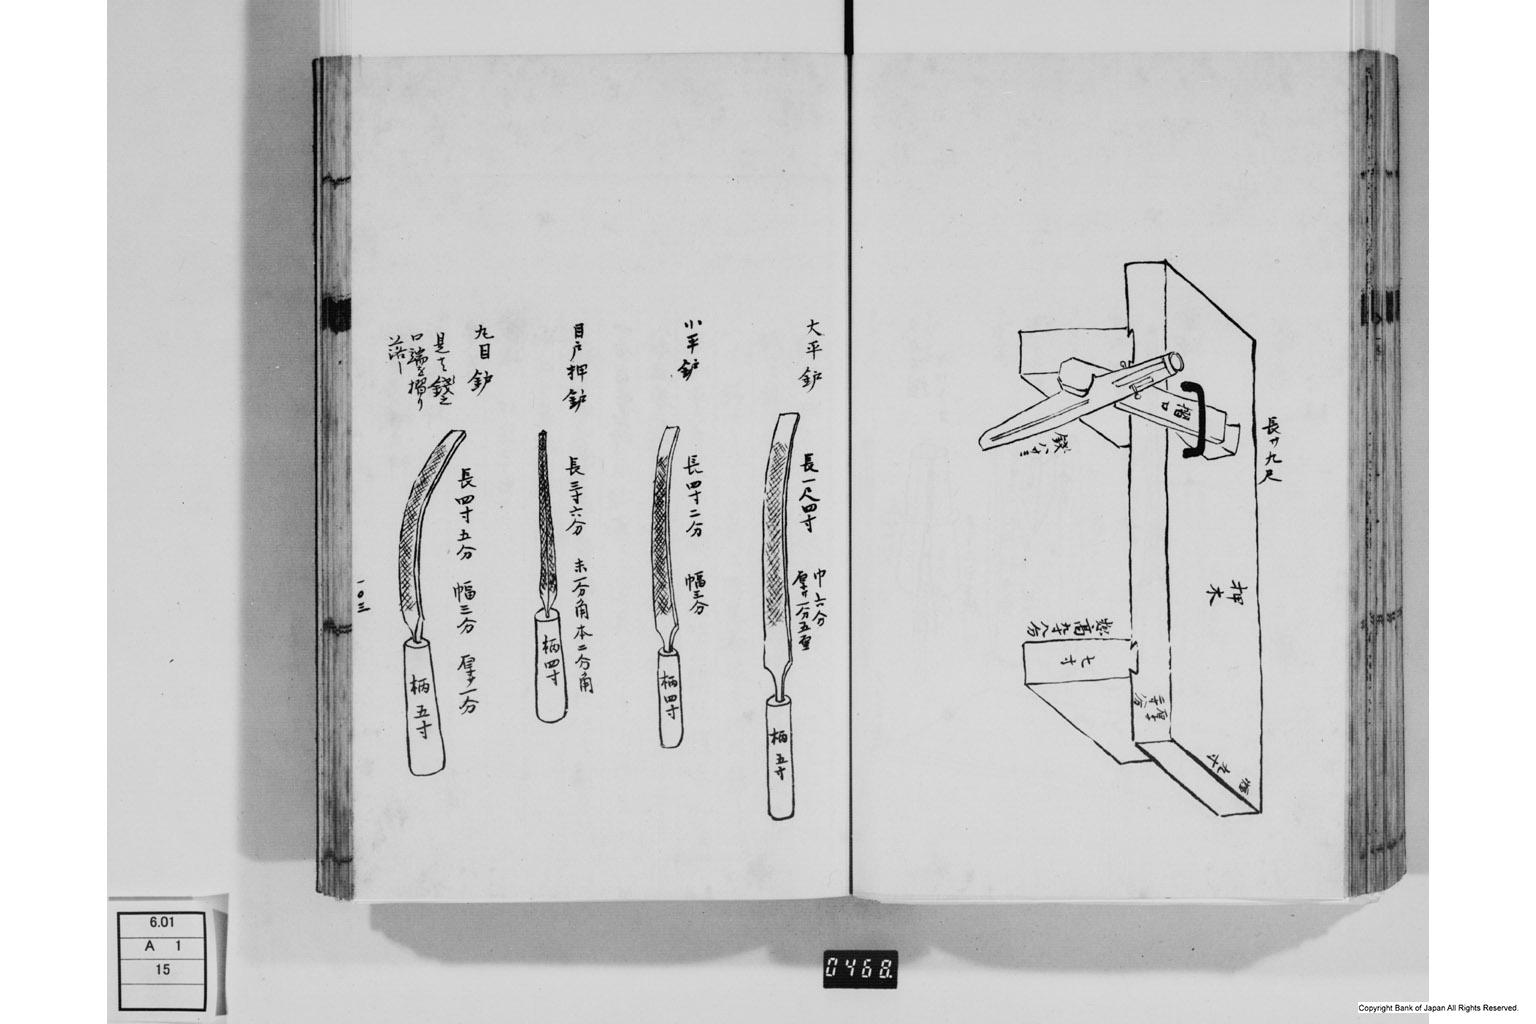 長サ九尺
押木
摺口
惣高九寸八分
七寸
厚サ
二寸八分
幅
九寸
大平鈩
長一尺四寸
巾六分
厚サ一分五厘
柄五寸
小平鈩
長四寸二分
幅三分
柄四寸
目戸押鈩
長三寸六分
末一分角本二分角
柄四寸
丸目鈩
是ハ銭之
口端を摺り
長四寸五分 幅三分 厚サ一分
柄五寸
一〇三
6.01
A 1
15
0468.
Copyright Bank of Japan All Rights Reserved.